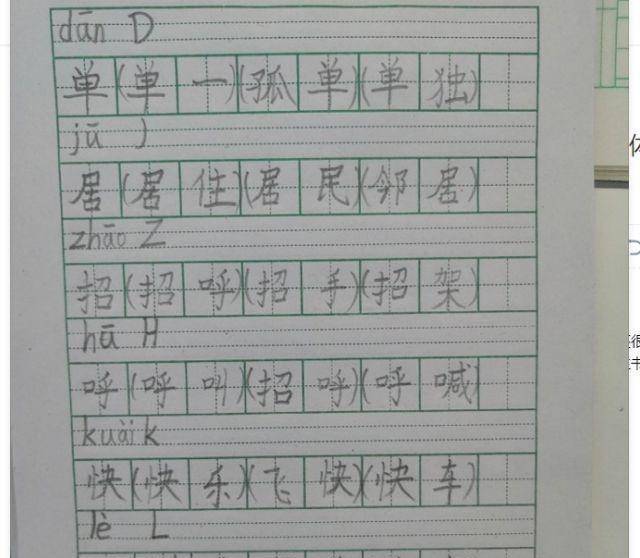 dān D
单(单一)(孤单)(单独)
jū J
居(居住)(居民)(邻居)
zhāo Z
招(招呼)(招手)(招架)
hū H
呼(呼叫)(招呼)(呼喊)
kuài k
快(快乐)(飞快)(快车)
lè L